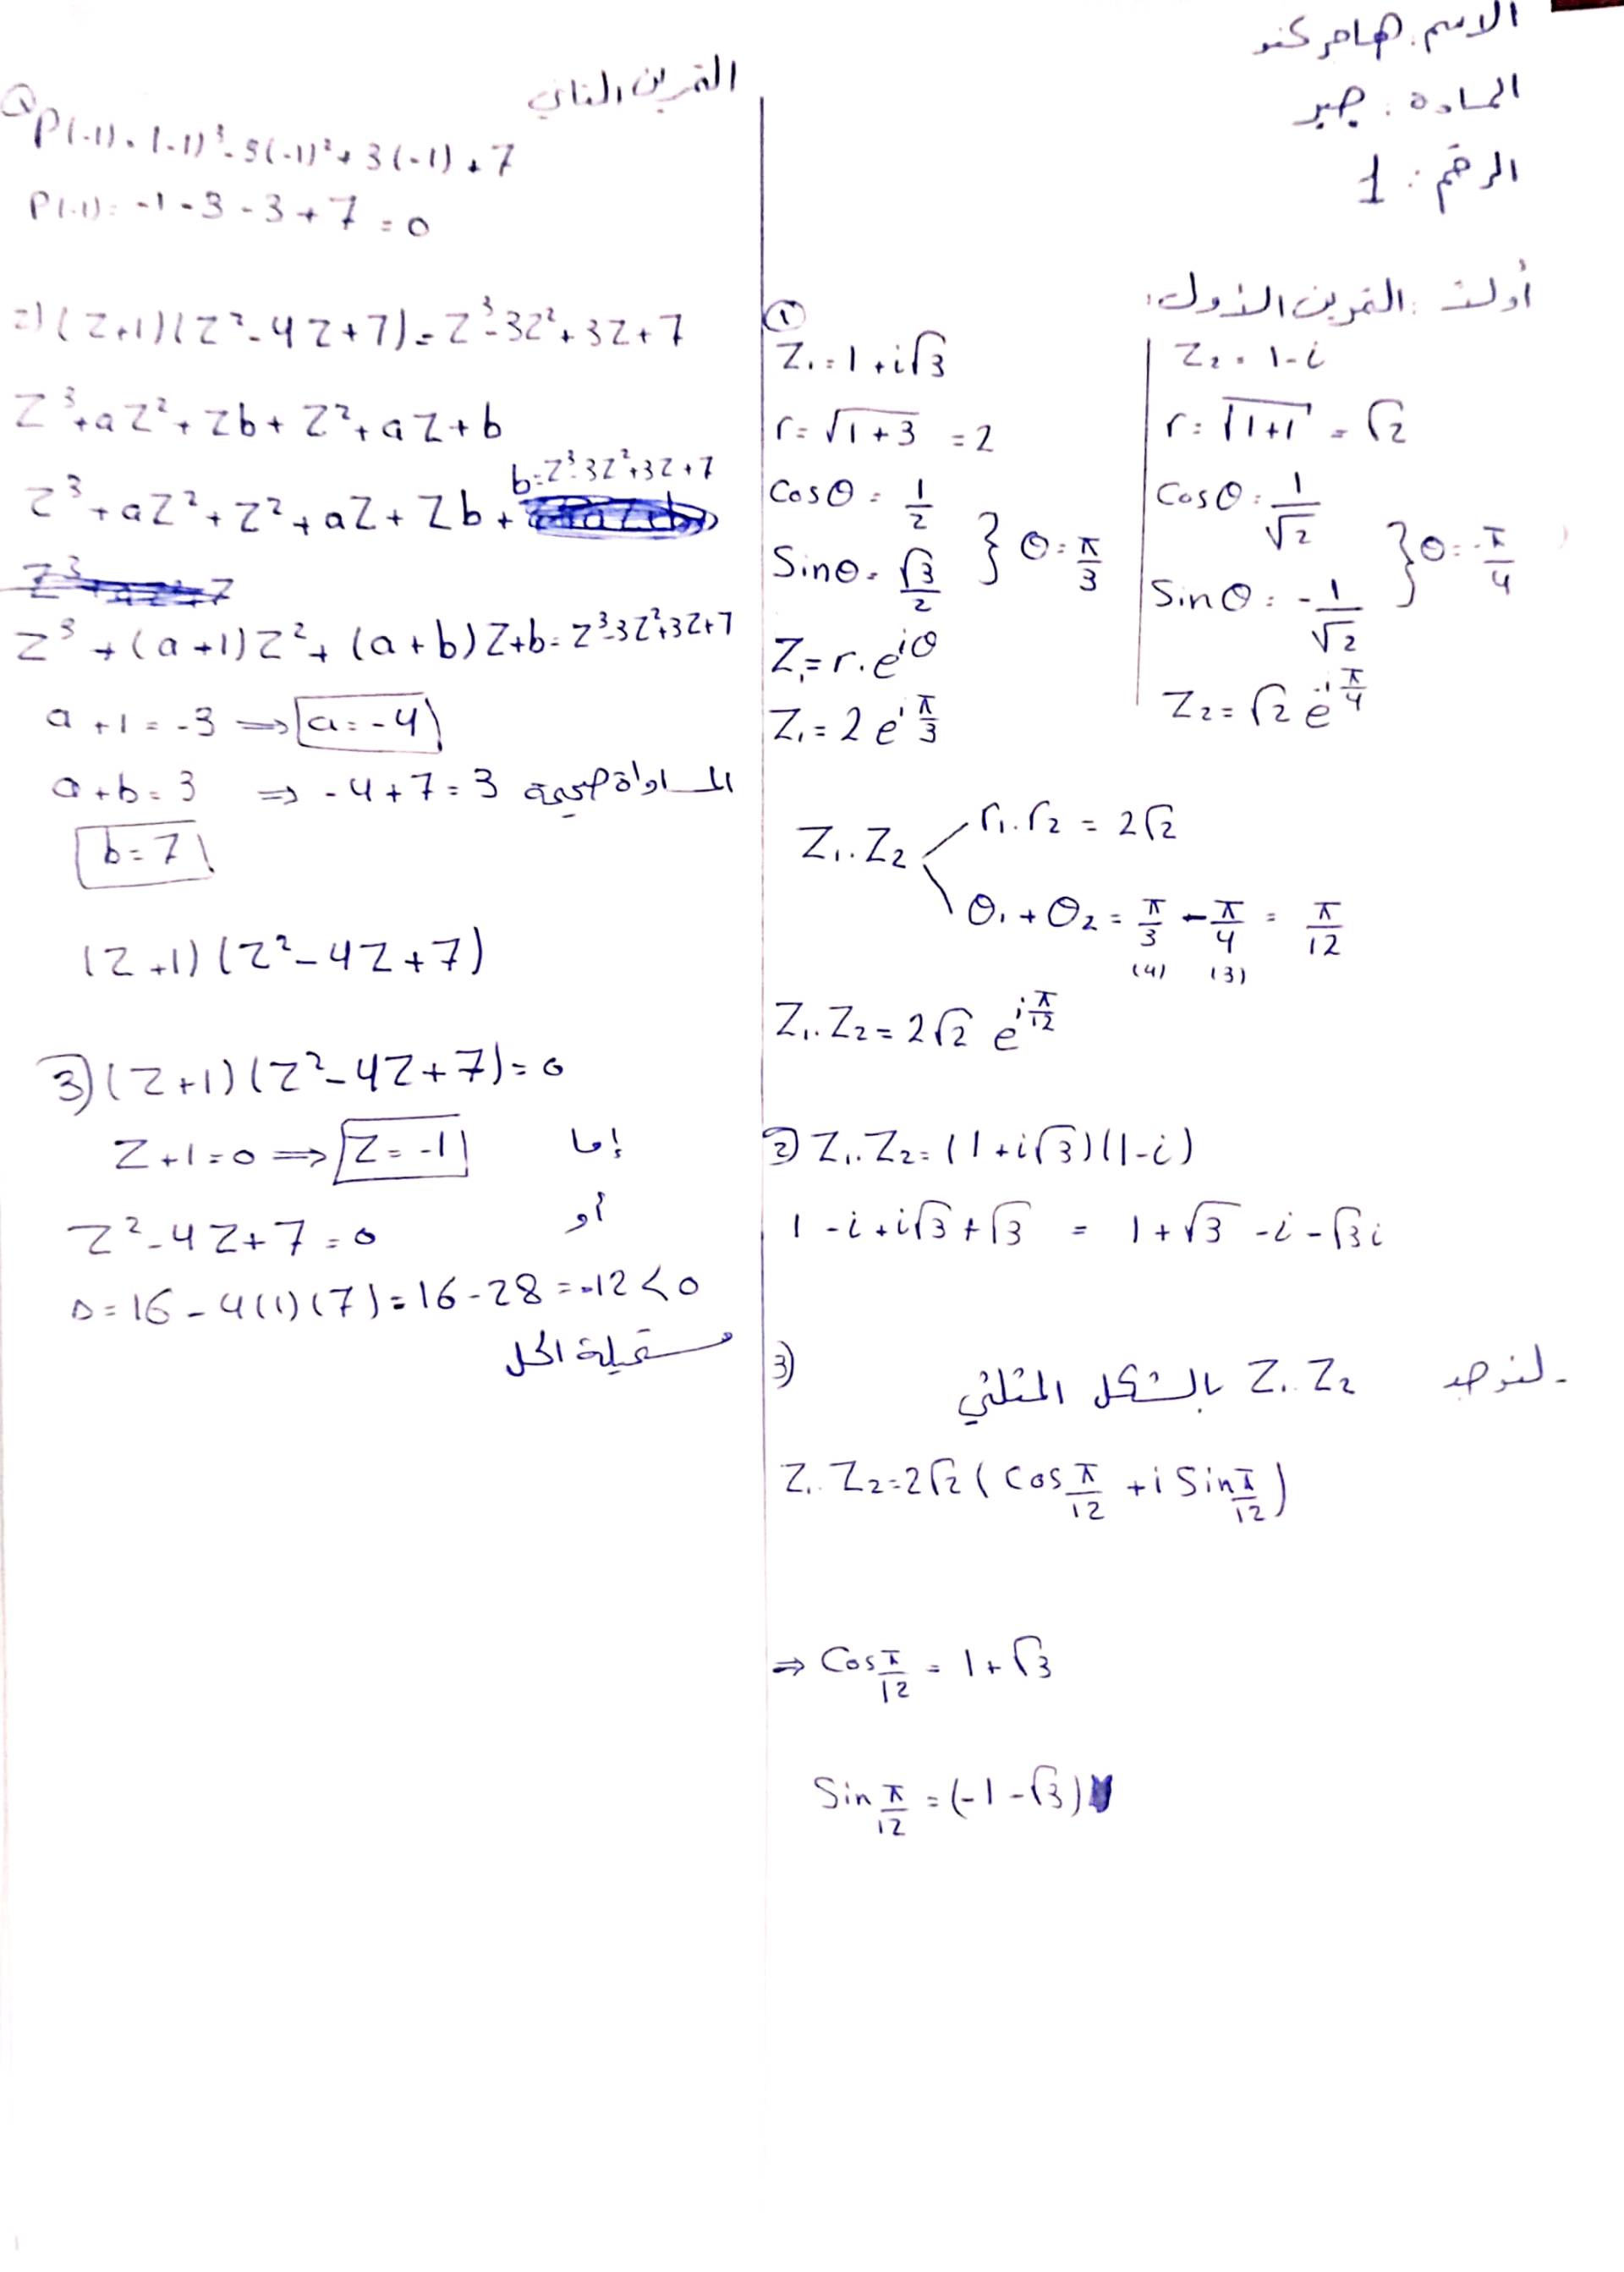 الاسم: هاجر كنو
المادة: جبر
الرقم: 1
أولت: التمرين الأول:
①
Z₁ = 1 + i√3
r = √1+3 = 2
Cos θ = 1/2
Sin θ = √3/2 } θ = π/3
Z₁ = r . e^iθ
Z₁ = 2 e^i π/3
Z₂ = 1 - i
r = √1+1 = √2
Cos θ = 1/√2
Sin θ = -1/√2 } θ = -π/4
Z₂ = √2 e^-i π/4
Z₁.Z₂
r₁.r₂ = 2√2
θ₁ + θ₂ = π/3 - π/4 = π/12
(4) (3)
Z₁.Z₂ = 2√2 e^i π/12
2) Z₁.Z₂ = (1 + i√3)(1 - i)
1 - i + i√3 + √3 = 1 + √3 - i - √3i
3) لنوجد Z₁.Z₂ بالشكل المثلثي
Z₁.Z₂ = 2√2 (Cos π/12 + i Sin π/12)
⇒ Cos π/12 = 1 + √3
Sin π/12 = (-1 - √3)
التمرين الثاني
1) P(-1) = (-1)³ - 3(-1)² + 3(-1) + 7
P(-1) = -1 - 3 - 3 + 7 = 0
2) (Z+1)(Z² - 4Z + 7) = Z³ - 3Z² + 3Z + 7
Z³ + aZ² + Zb + Z² + aZ + b
Z³ + aZ² + Z² + aZ + Zb + b = Z³ - 3Z² + 3Z + 7
Z³ + (a+1)Z² + (a+b)Z + b = Z³ - 3Z² + 3Z + 7
a + 1 = -3 ⇒ a = -4
a + b = 3 ⇒ -4 + 7 = 3 المساواة صحيحة
b = 7
(Z+1)(Z² - 4Z + 7)
3) (Z+1)(Z² - 4Z + 7) = 0
إما Z + 1 = 0 ⇒ Z = -1
أو Z² - 4Z + 7 = 0
Δ = 16 - 4(1)(7) = 16 - 28 = -12 < 0
مستحيلة الحل